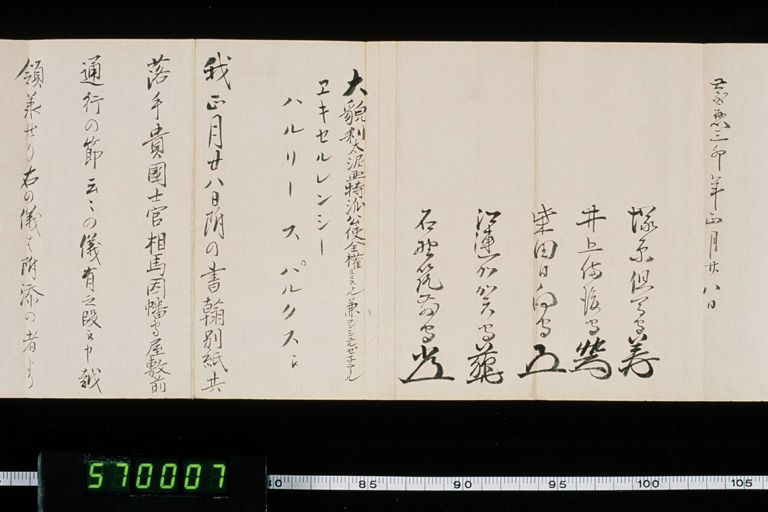 慶應三卯年正月廿八日
塚原但馬守
井上備後守
柴田日向守
江連加賀守
石野筑前守
大貌利太泥亜特派公使全権ミニストル兼コンシュルセネラール
ヱキセルレンシー
ハルリースパルクスに
我正月廿八日附の書翰別紙共
落手貴國士官相馬因幡守屋敷前
通行の節云々の儀有之段申越
領羕せり右の儀は附添の者より
570007
80 85 90 95 100 105